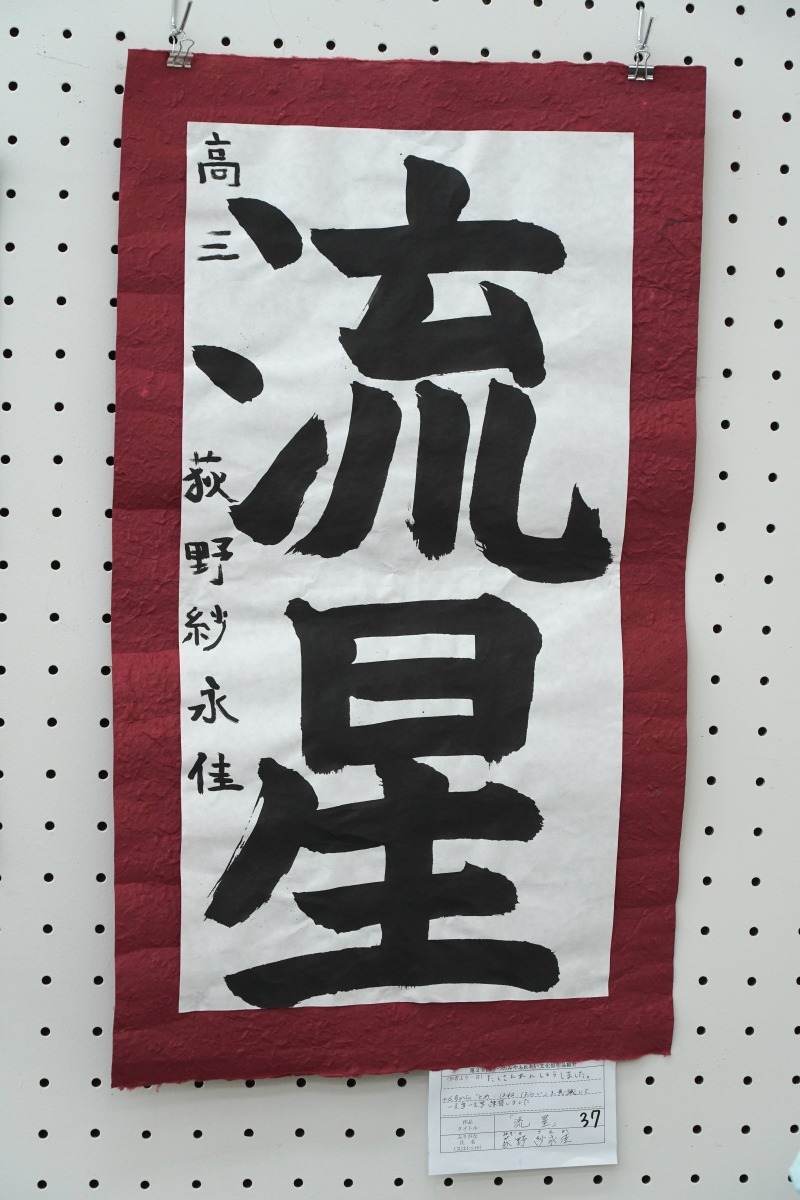 流星
高三 荻野紗永佳
たくさんれんしゅうしました。
作品
タイトル
「流星」
37
氏名
荻野 紗永佳